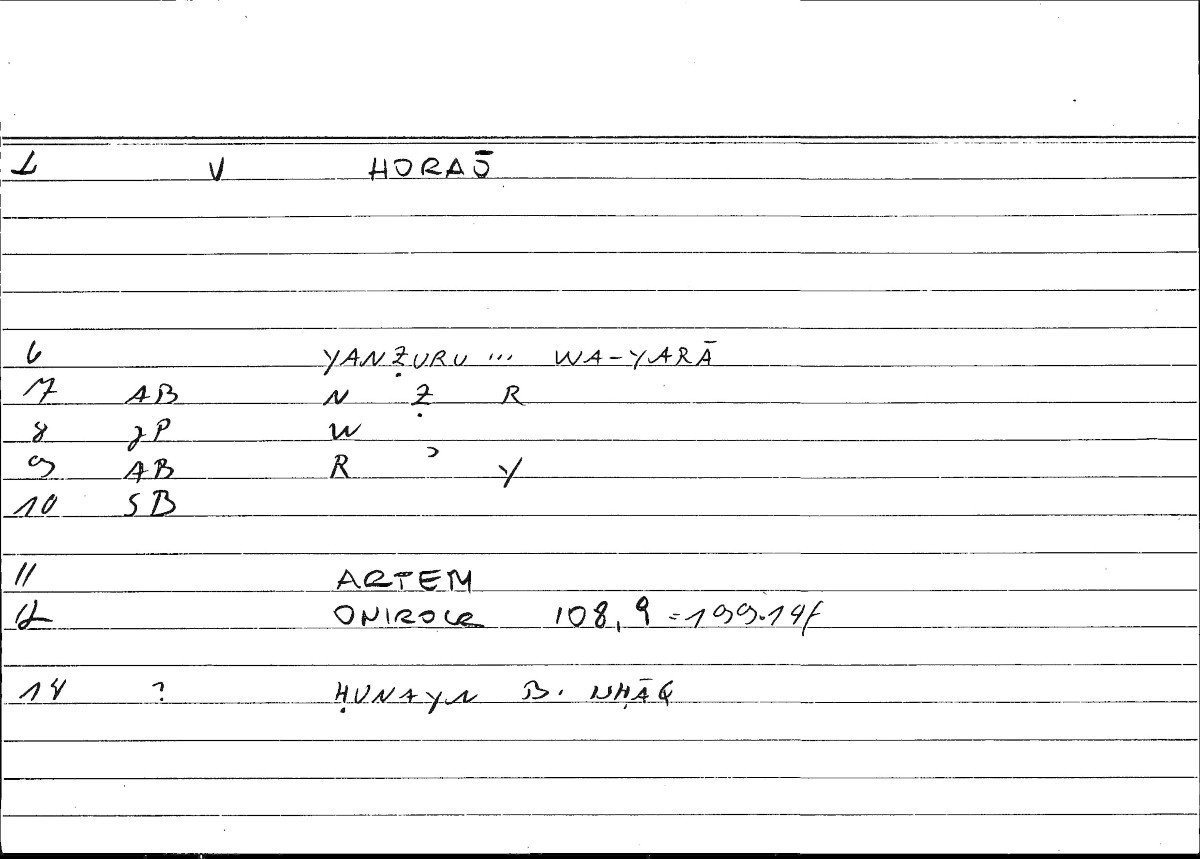 1 V HORAŌ
6 YANẒURU ... WA-YARĀ
7 AB N Ẓ R
8 gP W
9 AB R ʾ Y
10 SB
11 ARTEM
12 ONIROCR 108,9 = 199.14f
14 ? ḤUNAYN B. ISḤĀQ